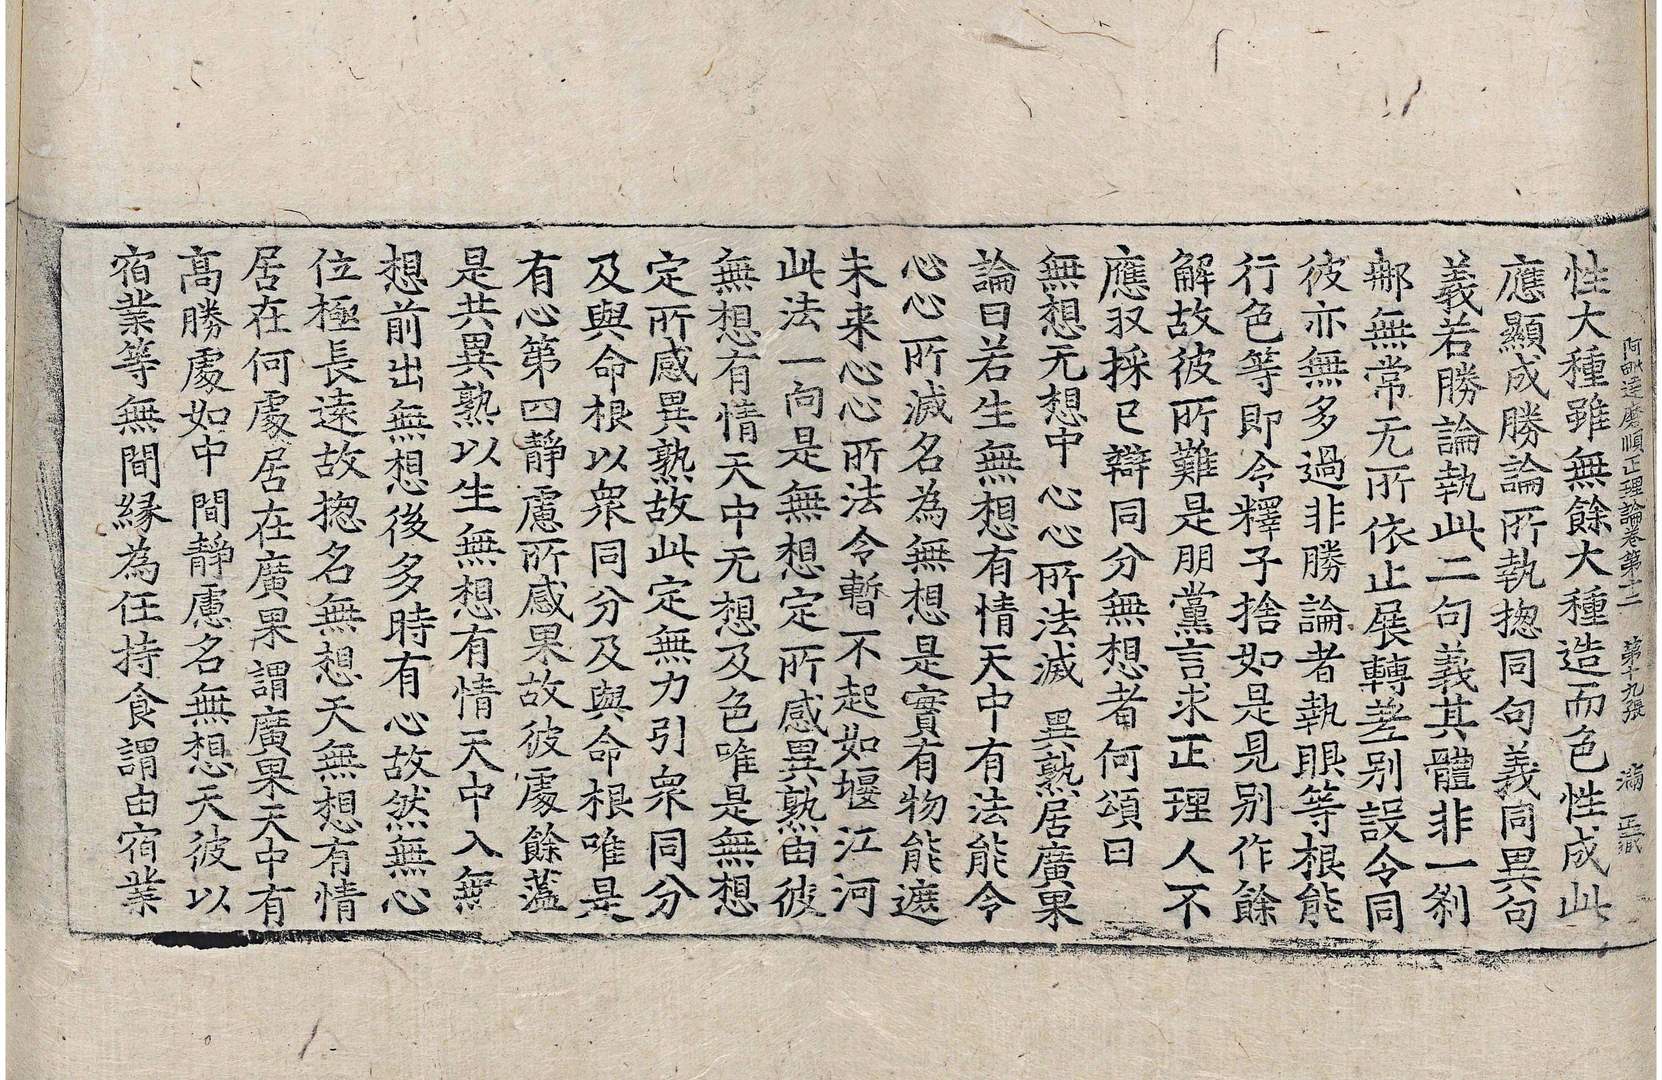 阿毗達磨順正理論卷第十二　第十九張　滿　正戢
性大種雖無餘大種造而色性成此
應顯成勝論所執揔同句義同異句
義若勝論執此二句義其體非一刹
那無常无所依止展轉差别設令同
彼亦無多過非勝論者執眼等根能
行色等即令釋子捨如是見别作餘
解故彼所難是朋黨言求正理人不
應収採已辯同分無想者何頌曰
無想无想中心心所法滅　異熟居廣果
論曰若生無想有情天中有法能令
心心所滅名為無想是實有物能遮
未来心心所法令暫不起如堰江河
此法一向是無想定所感異熟由彼
無想有情天中无想及色唯是無想
定所感異熟故此定無力引衆同分
及與命根以衆同分及與命根唯是
有心第四靜慮所感果故彼處餘蘊
是共異熟以生無想有情天中入無
想前出無想後多時有心故然無心
位極長遠故揔名無想天無想有情
居在何處居在廣果謂廣果天中有
高勝處如中間靜慮名無想天彼以
宿業等無間緣為任持食謂由宿業